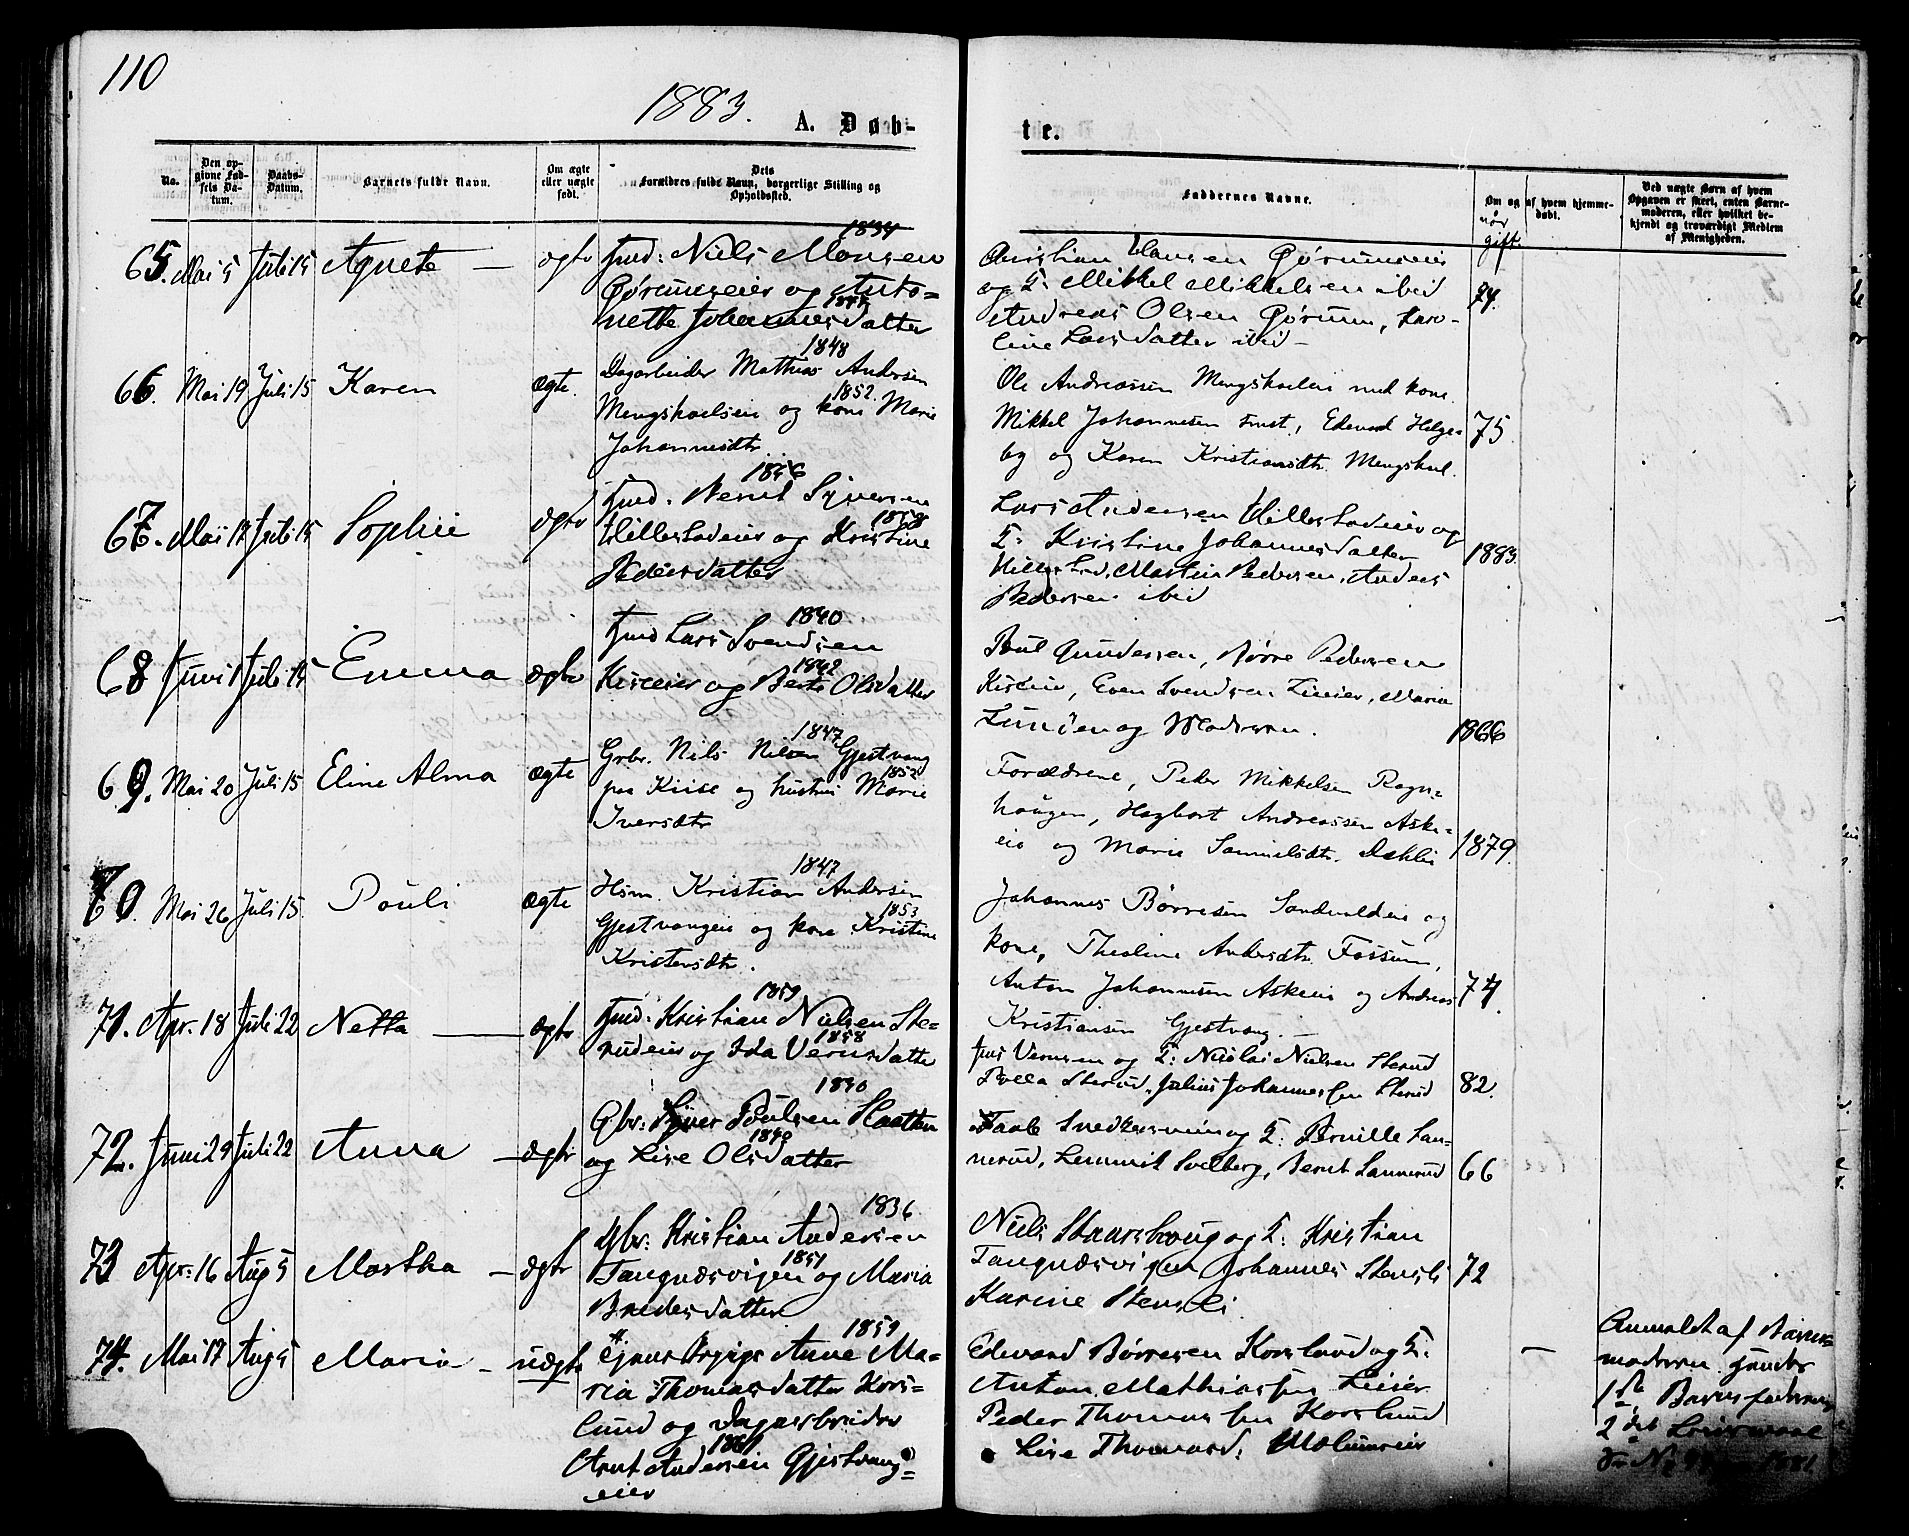 110
1883.
A. Døb-
te.
No.
Den op-
givne Fød-
sels Da-
tum.
Daabs-
Datum.
Barnets fulde Navn.
Om ægte
eller uægte
født.
Dets
Forældres fulde Navn, borgerlige Stilling og
Opholdssted.
Faddernes Navne.
Om og af hvem hjemme-
døbt.
når
gift.
Ved uægte Børn af hvem
Opgaven er skeet, enten Barne-
moderen, eller hvilket be-
kjendt og troværdigt Medlem
af Menigheden.
65. Mai 5 Juli 15 Agnete — ægte
1834
Niels Monsen
og Anto=
nette Johannesdatter
Christian Hansen
og F: Mikkel Mikkelsen ibid
Andreas Olsen Gørum, Karo-
line Larsdatter ibid —
74.
66. Mai 19 Juli 15 Karen ægte.
1848
Dagarbeider Mathias Andersen
1852.
og kone Marie
Johannesdtr.
Ole Andreassen med kone.
Mikkel Johannesen Edvard Helge-
by og Karen Kristiansdtr.
75
67. Mai 17 Juli 15 Sophie ægte
1856
Bernt Syversen
1858
Hillestadeier og Kristine
Pedersdatter
Lars Andersen Hillestadeier og
F: Kristine Johannesdatter
Martin Pedersen, Anders
Pedersen ibid
1883.
68 Juni 1 Juli 15 Emma ægte
1840
Lars Svendsen
1842
og Berte Olsdatter
Poul Gundersen, Børre Pedersen
Even Svendsen Maria
og Moderen.
1866
69. Mai 20 Juli 15 Eline Alma ægte
1847
Grbr. Nils Nilsen Gjestvang
1852
paa Kiise og hustru Marie
Iversdtr
Forældrene, Peder Mikkelsen Ragn=
haugen, Hagbart Andreassen Aske=
eie og Marie Samuelsdtr. Dahlie
1879.
70. Mai 26 Juli 15. Pouli ægte
1847
Hsm. Kristian Andersen
1853
Gjestvangeie og kone Kristine
Kristensdtr.
Johannes Børresen Sandvoldeie og
kone, Theoline Andersdtr. Fossum,
Anton Johannesen Askeeie og Andreas
Kristiansen Gjestvang. —
74.
71. Apr. 18 Juli 22 Netta — ægte
1859
Kristian Nielsen Ste-
1858
rudeier og Ida Verusdatter
og F: Nicolai Nielsen Sterud
Sterud, Julius Johannessen Sterud
82.
72. Juni 29 Juli 22 Anna — ægte
1840
Gbr: Syver Poulsen Slaatten
1840
og Lise Olsdatter
og F: Pernille San-
nerud, Lemmik Solberg, Bernt Sannerud
66
73 Apr: 16 Aug 5 Martha — ægte
1836
Gbr: Kristian Andersen
1851
Tangnæsvigen og Maria
Bredesdatter
Niels Skaarshoug og F: Kristian
Tangnæsvigen Johannes Stensli
Karine Stensli
72
74. Mai 17 Aug 5 Maria — uægte
1859
Pige Anne Ma-
ria Thomasdatter Kors-
lund og Dagarbeider
1861
Arnt Andersen Gjestvang=
eier
Edvard Børresen Korslund og F:
Anton Mathiassen
Peder Thomassen Korslund
Lise Thomasd:
—
Anmeldt af Barne-
moderen
1ste Barnefaderens
2det Leiermaal
1881